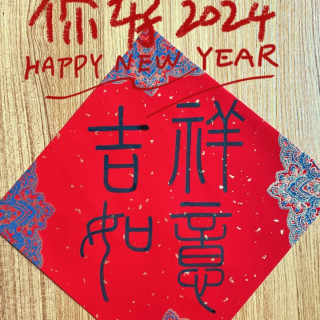 你好 2024
HAPPY NEW YEAR
吉祥
如意